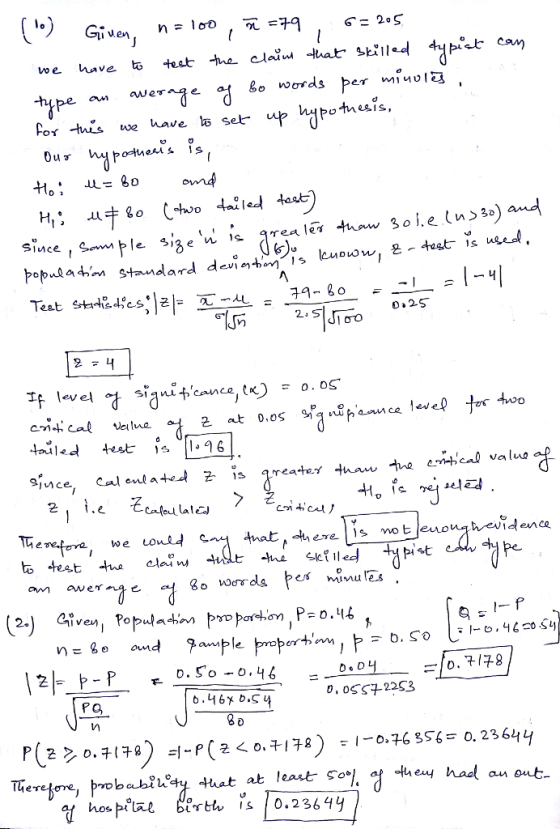 (1.) Given, n = 100, x̄ = 79, σ = 2.5
we have to test the claim that skilled typist can
type an average of 80 words per minutes,
for this we have to set up hypothesis,
Our hypothesis is,
H₀: μ = 80 and
H₁: μ ≠ 80 (two tailed test)
since, sample size 'n' is greater than 30 i.e (n>30) and
population standard deviation (σ) is known, z-test is used.
Test statistics; |z| = x̄ - μ / σ/√n = 79-80 / 2.5/√100 = -1 / 0.25 = |-4|
z = 4
If level of significance, (α) = 0.05
critical value of z at 0.05 significance level for two
tailed test is 1.96.
since, calculated z is greater than the critical value of
z, i.e Zcalculated > Zcritical, H₀ is rejected.
Therefore, we could say that, there is not enough evidence
to test the claim that the skilled typist can type
an average of 80 words per minutes.
(2.) Given, Population proportion, P = 0.46, [Q = 1-P
n = 80 and sample proportion, p = 0.50 = 1-0.46 = 0.54]
|z| = p - P / √(PQ / n) = 0.50 - 0.46 / √(0.46 x 0.54 / 80) = 0.04 / 0.05572253 = 0.7178
P(z ≥ 0.7178) = 1-P(z < 0.7178) = 1-0.76356 = 0.23644
Therefore, probability that at least 50% of them had an out-
of hospital birth is 0.23644